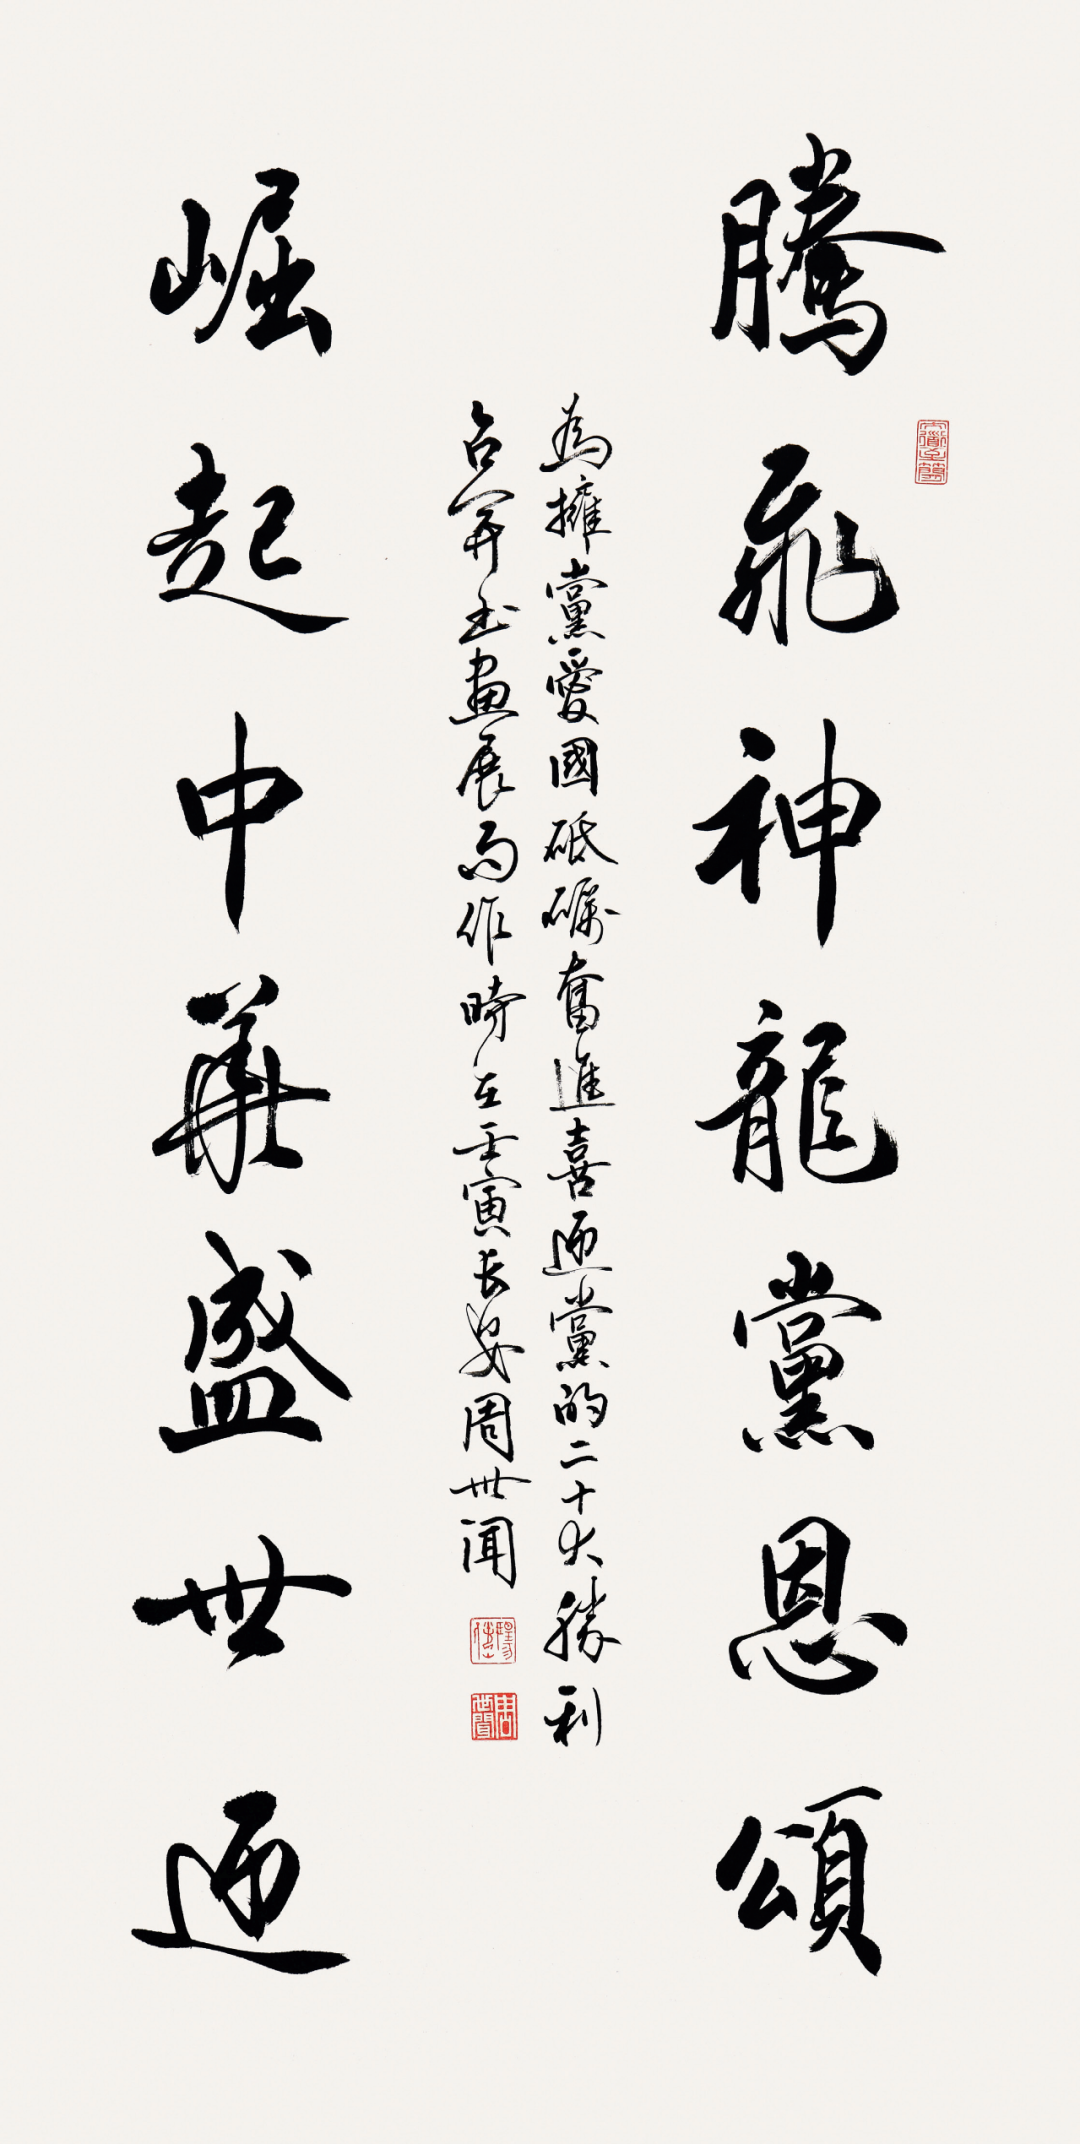 騰飛神龍黨恩頌
崛起中華盛世迎
為擁黨愛國砥礪奮進喜迎黨的二十大勝利
召開書畫展而作時在壬寅長安周世闻
大道至簡
周世聞